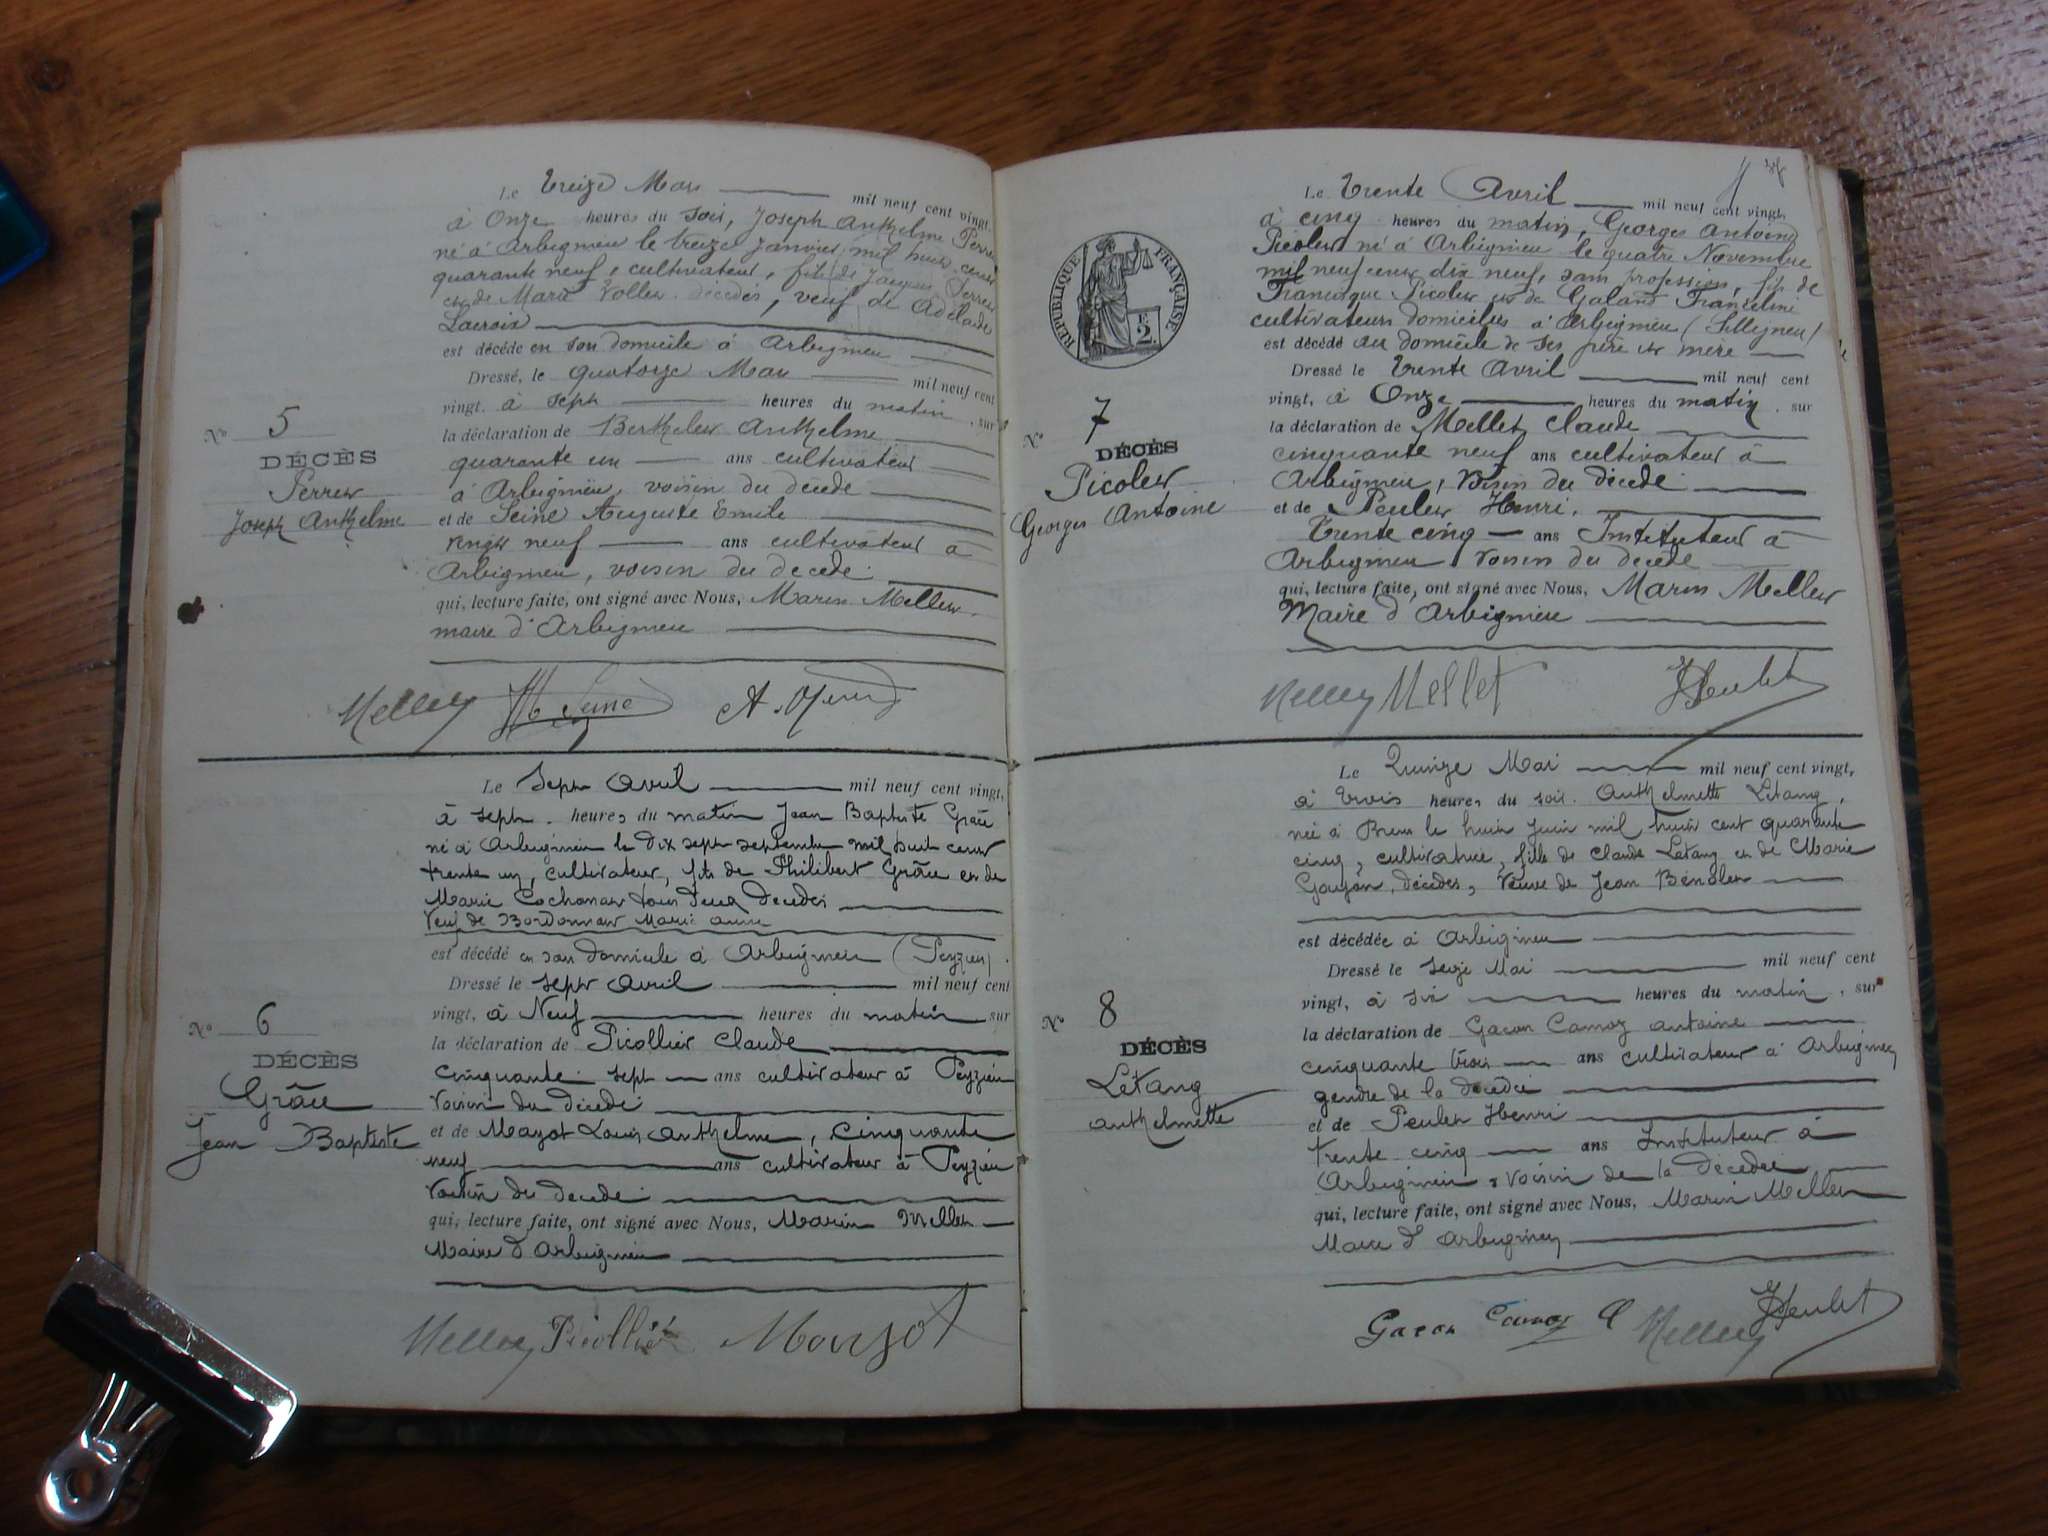 Le Treize Mars mil neuf cent vingt,
à Onze heures du soir, Joseph Anthelme Perret
né à Arbignieu le treize Janvier mil huit cent
quarante neuf, cultivateur, fils de Jacques Perret
et de Marie Vollet décédés, veuf de Adélaïde
Lacroix
est décédé en son domicile à Arbignieu
Dressé, le quatorze Mars mil neuf cent
vingt, à sept heures du matin, sur
la déclaration de Berthelet Anthelme
quarante un ans cultivateur
à Arbignieu, voisin du décédé
et de Seine Auguste Emile
vingt neuf ans cultivateur à
Arbignieu, voisin du décédé
qui, lecture faite, ont signé avec Nous, Marin Mellet
maire d'Arbignieu
N° 5
DÉCÈS
Perret
Joseph Anthelme
Mellet Seine
Le sept Avril mil neuf cent vingt,
à sept heures du matin Jean Baptiste Grâce
né à Arbignieu le dix sept septembre mil huit cent
trente un, cultivateur, fils de Philibert Grâce et de
Marie Cochonat tous deux décédés
Veuf de Bordonnat Marie Anne
est décédé en son domicile à Arbignieu (Peyzieu).
Dressé le sept Avril mil neuf cent
vingt, à Neuf heures du matin sur
la déclaration de Picollier Claude
cinquante sept ans cultivateur à Peyzieu
voisin du décédé
et de Mazot Louis Anthelme, cinquante
neuf ans cultivateur à Peyzieu
voisin du décédé
qui, lecture faite, ont signé avec Nous, Marin Mellet
Maire d'Arbignieu
N° 6
DÉCÈS
Grâce
Jean Baptiste
Mellet Picollier Mazot
Le Trente Avril mil neuf cent vingt,
à cinq heures du matin, Georges Antoine
Picolet né à Arbignieu le quatre Novembre
mil neuf cent dix neuf, sans profession, fils de
Francisque Picolet et de Galand Franceline
cultivateurs domiciliés à Arbignieu (Sillignieu)
est décédé au domicile de ses père et mère
Dressé le Trente Avril mil neuf cent
vingt, à Onze heures du matin, sur
la déclaration de Mellet Claude
cinquante neuf ans cultivateur à
Arbignieu, voisin du décédé
et de Peulet Henri,
Trente cinq ans Instituteur à
Arbignieu voisin du décédé
qui, lecture faite, ont signé avec Nous, Marin Mellet
Maire d'Arbignieu
RÉPUBLIQUE FRANÇAISE
F.
2.
N° 7
DÉCÈS
Picolet
Georges Antoine
Mellet Mellet HPeulet
Le Quinze Mai mil neuf cent vingt,
à trois heures du soir. Anthelmette Létang,
née à Brens le huit Juin mil huit cent quarante
cinq, cultivatrice, fille de Claude Létang et de Marie
Goujon, décédés, veuve de Jean Bénolet
est décédée à Arbignieu
Dressé le seize Mai mil neuf cent
vingt, à six heures du matin, sur
la déclaration de Gacon Camoz Antoine
cinquante trois ans cultivateur à Arbignieu
gendre de la décédée
et de Peulet Henri
trente cinq ans Instituteur à
Arbignieu, voisin de la décédée
qui, lecture faite, ont signé avec Nous, Marin Mellet
Maire d'Arbignieu
N° 8
DÉCÈS
Létang
Anthelmette
Gacon Camoz A Mellet HPeulet